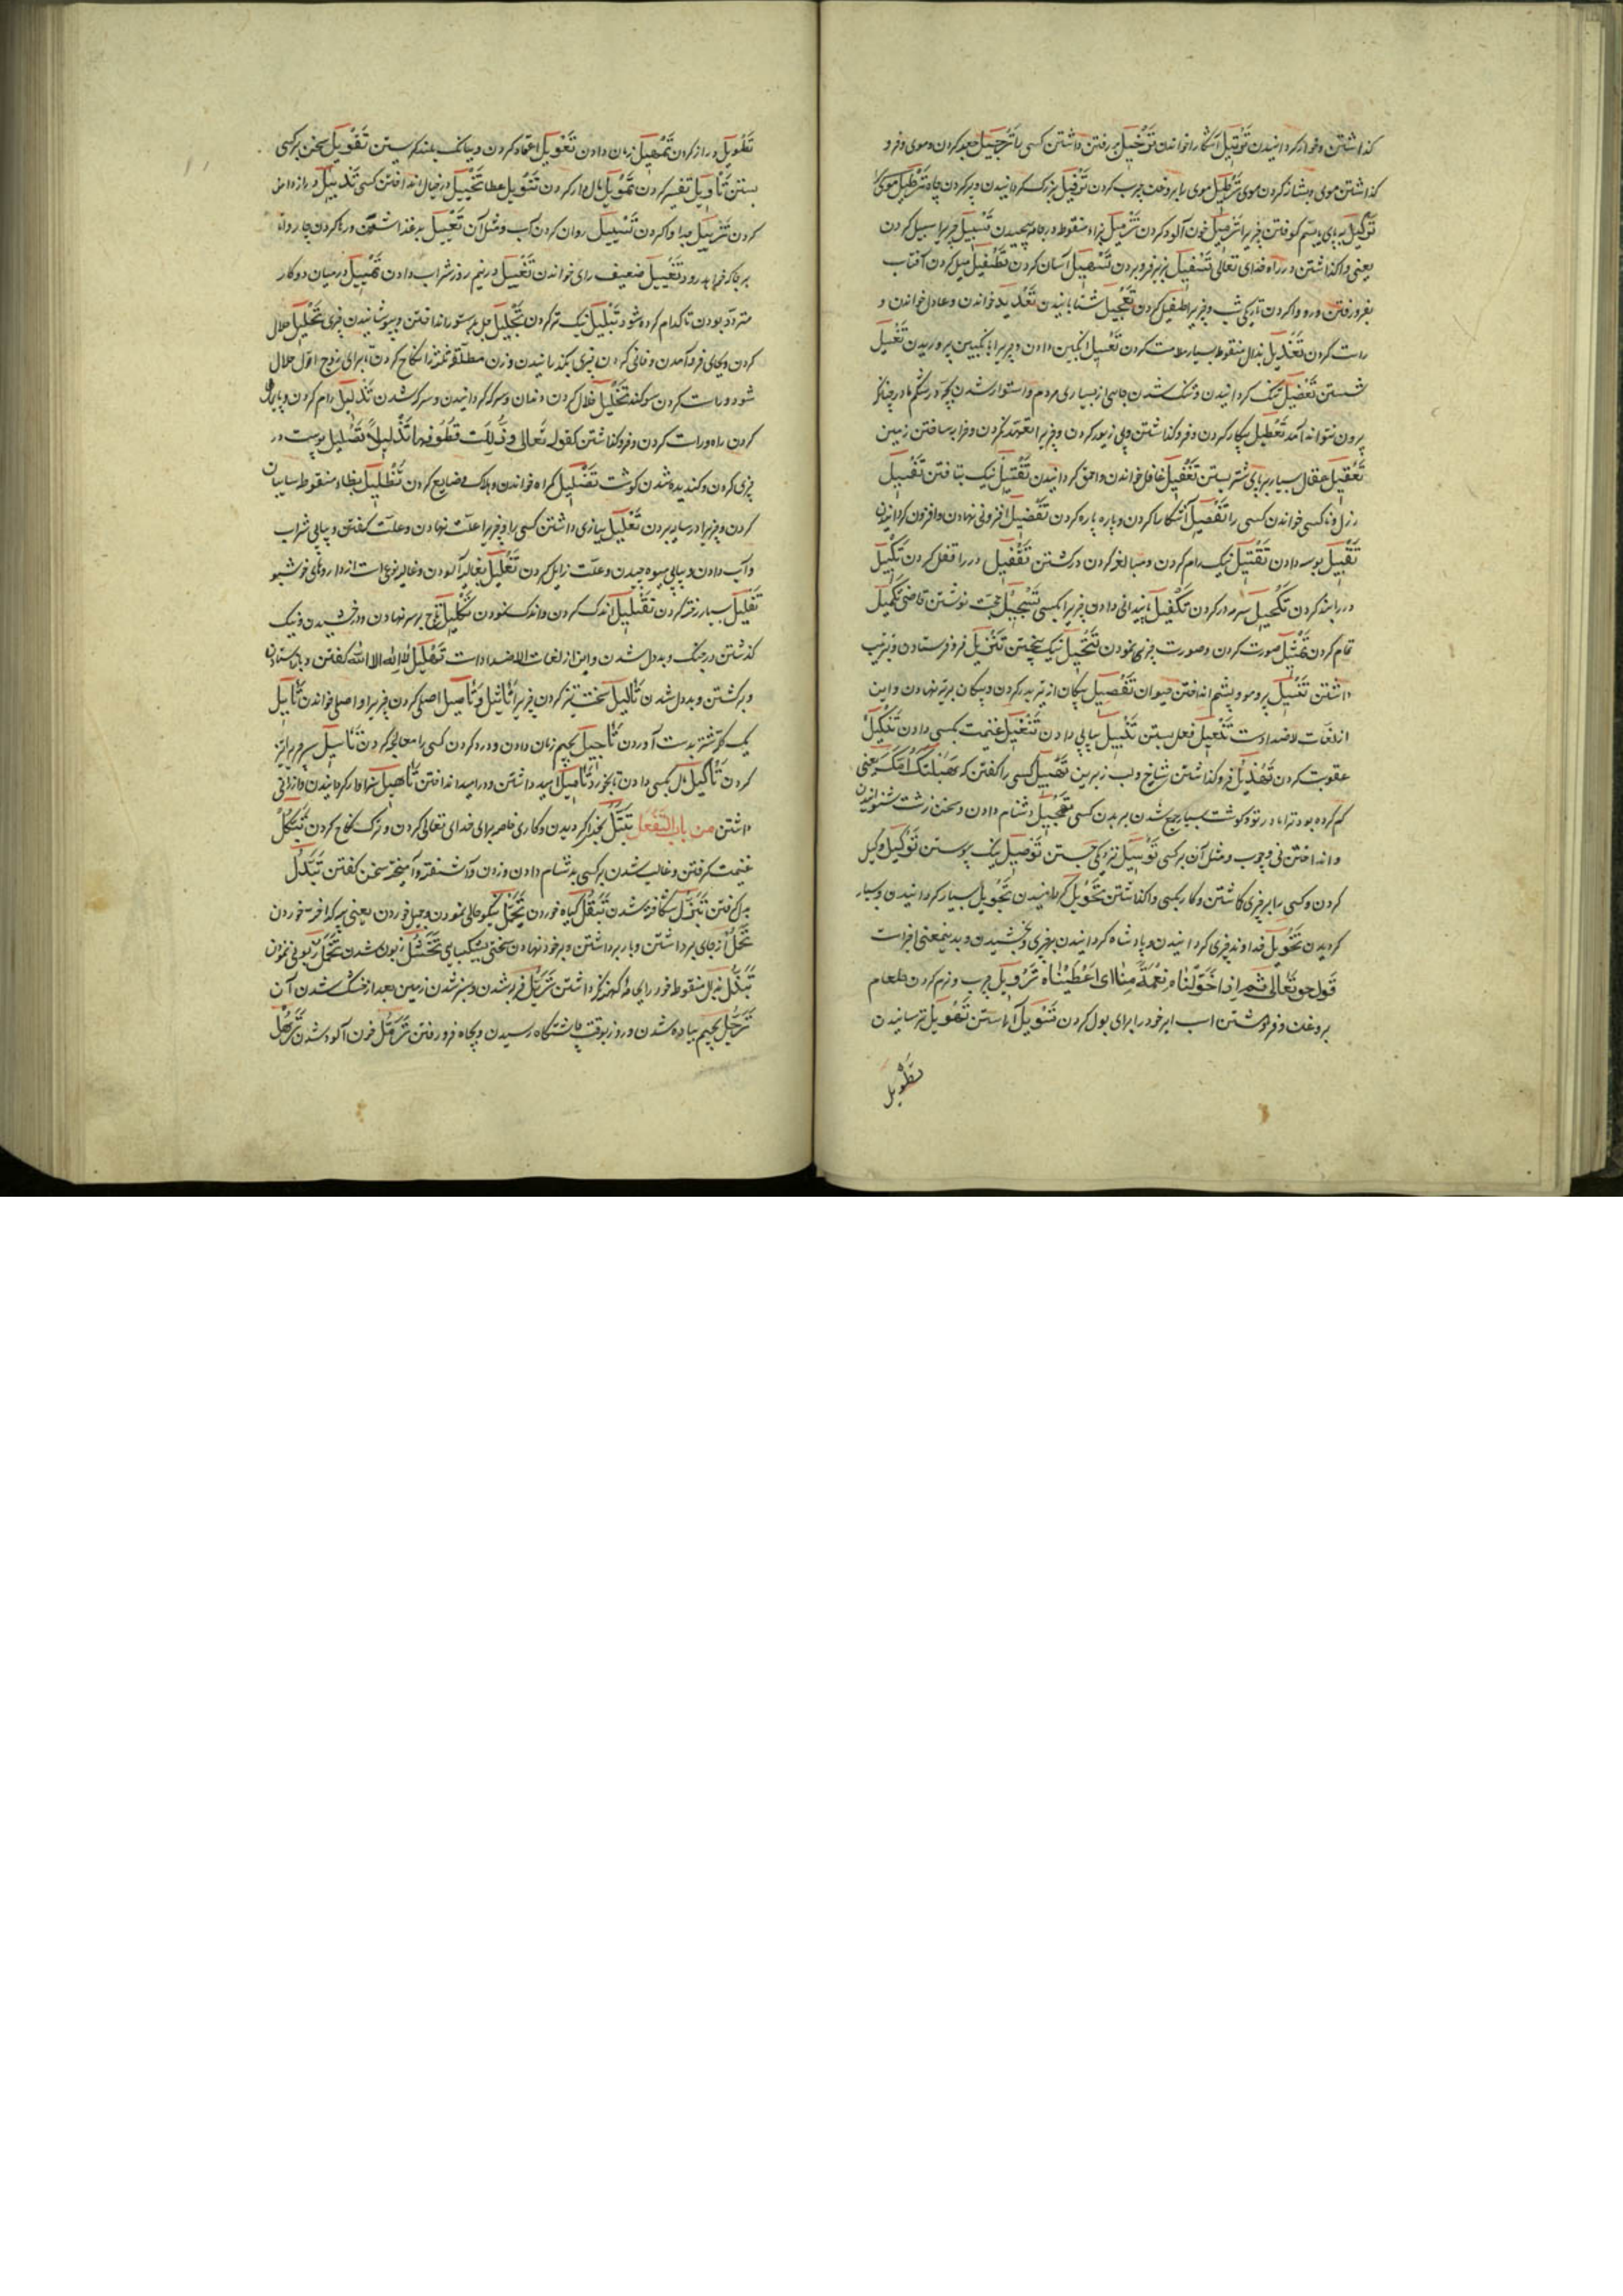 کذاشتن و خوار کردانیدن تَوْتِیل آشکارا خواندن تَرْحِیل برفتن داشتن کسی را تَرْجِیل جعد کردن موی و فرو
کذاشتن موی و بشانه کردن موی تَرْطِیل موی را بروغن چرب کردن تَرْفِیل بزرک کردانیدن و پر کردن چاه
تَرْکِیل بپای و ستم کوفتن چیزیرا تَرْمِیل خون آلود کردن تَزْمِیل بزاء منقوطه در جامه پیچیدن تَسْبِیل چیزیرا سبیل کردن
یعنی واکذاشتن در راه خدای تعالی تَسْفِیل بزیر فرو بردن تَسْهِیل آسان کردن تَطْفِیل میل کردن آفتاب
بفرو رفتن و رو واکردن تاریکی شب و چیزیرا طفیل کردن تَعْجِیل شتابانیدن تَعْدِیل عادل خواندن و
راست کردن تَعْذِیل بذال منقوطه بسیار ملامت کردن تَعْسِیل انکبین دادن و چیزیرا بانکبین پروریدن تَغْسِیل
شستن تَعْضِیل تنک کردانیدن و تنک شدن جای از بسیاری مردم و استوار شدن بچه در شکم مادر چنانکه
بیرون نتواند آمد تَعْطِیل بیکار کردن و فروکذاشتن و بی زیور کردن و چیزیرا تعهد نکردن و خرابه ساختن زمین
تَعْقِیل عقال بسیار بر پای شتر بستن تَغْفِیل غافل خواندن و احمق کردانیدن تَفْتِیل نیک بتافتن تَفْسِیل
رذل و ناکسی خواندن کسی را تَفْصِیل آشکارا کردن و پاره پاره کردن تَفْضِیل افزونی نهادن و افزون کردانیدن
تَقْبِیل بوسه دادن تَقْتِیل نیک رام کردن و مبالغه کردن در کشتن تَقْفِیل در را قفل کردن تَکْبِیل
در بند کردن تَکْحِیل سرمه در کردن تَکْفِیل پایندانی دادن چیزیرا بکسی تَسْجِیل حجت نوشتن قاضی تَکْمِیل
تمام کردن تَمْثِیل صورت کردن و صورت چیزی نمودن تَنْخِیل نیک بیختن تَنْزِیل فرو فرستادن و بترتیب
داشتن تَنْسِیل پر و مو و پشم انداختن حیوان تَنْصِیل پیکان از تیر بدر کردن و پیکان بر تیر نهادن و این
از لغات لاضداد است تَنْعِیل نعل بستن تَکْبِیل پیاپی دادن تَنْفِیل غنیمت بکسی دادن تَنْکِیل
عقوبت کردن تَهْدِیل فروکذاشتن شاخ و لب زیرین تَهْبِیل کسی را کفتن که هَبِلَتْکَ اُمُّکَ یعنی
کم کرده بود ترا مادر تو و کوشت بسیار جمع شدن بر بدن کسی تَهْجِیل دشنام دادن و سخن زشت شنوانیدن
و انداختن نی و چوب و مثل آن بر کسی تَوْسِیل نزدیکی جستن تَوْصِیل نیک پیوستن تَوْکِیل وکیل
کردن و کسی را بر چیزی کاشتن و کار بکسی واکذاشتن تَحْوِیل کردانیدن تَجْوِیل بسیار کردانیدن و بسیار
کردیدن تَخْوِیل خداوند چیزی کردانیدن و پادشاه کردانیدن بر چیزی و بخشیدن و بدینمعنی اخراست
قوله تَعَالی ثُمَّ اِذَا خَوَّلْنَاهُ نِعْمَةً مِنَّا ای اَعْطَیْنَاهُ تَرْوِیل چرب و نرم کردن طعام
بروغن و فروهشتن اسب ایر خود را برای بول کردن تَسْوِیل آراستن تَهْوِیل ترسانیدن
تَطْوِیل
تَطْوِیل دراز کردن تَمْهِیل زمان دادن تَعْوِیل اعتماد کردن و ببانک بلند کریستن تَقْوِیل سخن بر کسی
بستن تَأْوِیل تفسیر کردن تَمْوِیل مال دار کردن تَنْوِیل عطا تَخْیِیل در خیال انداختن کسی تَذْیِیل دراز دامن
کردن تَزْیِیل جدا واکردن تَسْیِیل روان کردن آب و مثل آن تَعْیِیل بد غذا داشتن و رها کردن چاروا تا
هر جا که خواهد رود تَفْیِیل ضعیف رای خواندن تَقْیِیل در نیم روز شراب دادن تَمْیِیل در میان دو کار
متردد بودن تا کدام کرده شود تَبْلِیل نیک تر کردن تَجْلِیل جل بر ستور انداختن و بپوشانیدن چیزی تَحْلِیل حلال
کردن و بجای فرود آمدن و زن مطلقه ثلثه را نکاح کردن برای زوج اول حلال
شود و راست کردن سوکند تَخْلِیل خلال کردن دندان و سرکه کردانیدن و سرکه شدن تَذْلِیل رام کردن
کردن راه و راست کردن و فروکذاشتن کقوله تعالی وَذُلِّلَتْ قُطُوفُهَا تَذْلِیلًا تَصْلِیل پوست در
چیزی کردن و کندیده شدن کوشت تَضْلِیل کمراه خواندن و هلاک و ضایع کردن تَظْلِیل بظاء منقوطه سایبان
کردن و چیزیرا در سایه بردن تَعْلِیل ببازی داشتن کسی را و چیزیرا علت نهادن و علت کفتن و پیاپی شراب
و آب دادن و پیاپی میوه چیدن و علت زایل کردن تَغْلِیل بغالیه آلودن و غالیه نوعی است از داروهای خوشبو
تَفْلِیل بسیار رخنه کردن تَقْلِیل اندک کردن و اندک نمودن تَکْلِیل تاج بر سر نهادن و درخشیدن و نیک
کذشتن در جنک و بد دل شدن و این از لغات الاضداد است تَهْلِیل لا اله الا الله کفتن و بازایستادن
و برکشتن و بد دل شدن تَأْلِیل سخت تیز کردن چیزیرا تَأْثِیل وَتَأْصِیل اصلی کردن چیزیرا و اصلی خواندن تَأْبِیل
یک کله شتر بدست آوردن تَأْجِیل بجیم زمان دادن و درد کردن کسی را معالجه کردن تَأْسِیل
کردن تَأْکِیل مال بکسی دادن تا بخورد تَأْمِیل امید داشتن و در امید انداختن تَأْهِیل سزاوار کردانیدن و ارزانی
داشتن من باب التَّفَعُّل تَبَتُّل بخدا کردیدن و کاری خاصه برای خدای تعالی کردن و ترک نکاح کردن تَبَکُّل
غنیمت کرفتن و غالب شدن بر کسی بدشنام دادن و زدن و آشفته و آمیخته سخن کفتن تَبَدُّل
بدل کرفتن تَبَزُّل شکافته شدن تَبَقُّل کیاه خوردن تَجَمُّل نیکو حالی نمودن و جمیل خوردن یعنی پیه کداخته خوردن
تَحَمُّل از جای برداشتن و بار برداشتن و بر خود نهادن سختی بشکیبایی تَخَشُّل زبون شدن
تَبَذُّل بذال منقوطه خود را نکه نداشتن تَرَبُّل فربه شدن و سبز شدن زمین بعد از خشک شدن آن
تَرَجُّل بجیم پیاده شدن و روز بوقت چاشتکاه رسیدن و بچاه فرو رفتن تَرَمُّل خون آلود شدن تَرَهُّل